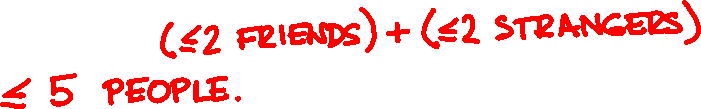 (≤2 FRIENDS) + (≤2 STRANGERS)
≤ 5 PEOPLE.